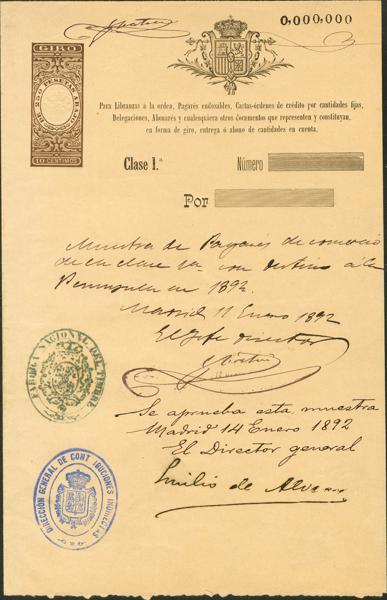 0,000,000
GIRO
DE 250 PESETAS ABAJO
10 CENTIMOS
Para Libranzas á la orden, Pagarés endosables, Cartas-órdenes de crédito por cantidades fijas,
Delegaciones, Abonarés y cualesquiera otros documentos que representen y constituyan,
en forma de giro, entrega ó abono de cantidades en cuenta.
Clase 1.ª Número
Por
Muestra de Pagarés de comercio
de la clase 1ª con destino á la
Península en 1892.
Madrid 11 Enero 1892
El Jefe director
FÁBRICA NACIONAL DEL TIMBRE
Se aprueba esta muestra
Madrid 14 Enero 1892
El Director general
Emilio de
DIRECCIÓN GENERAL DE CONTRIBUCIONES INDIRECTAS